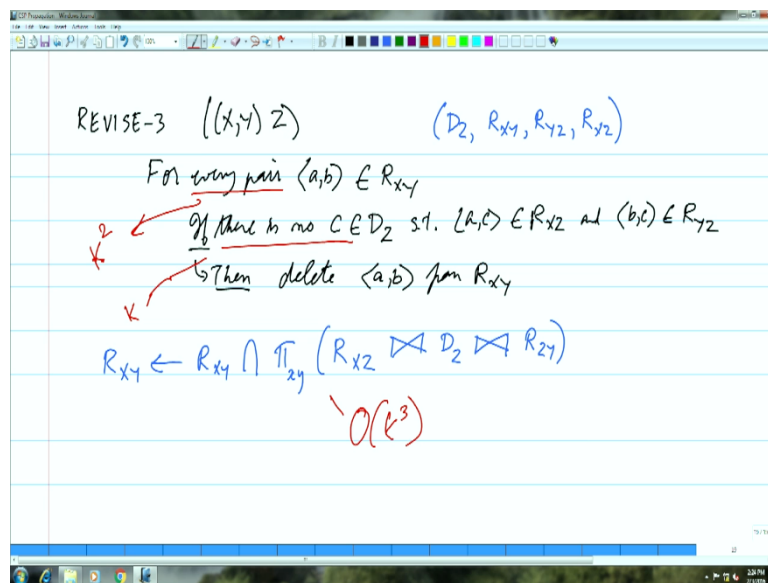 CSP Preparation - Windows Journal
File Edit View Insert Actions Tools Help
REVISE-3 ((X,Y) Z) (D_Z, R_XY, R_YZ, R_XZ)
For every pair ⟨a,b⟩ ∈ R_XY
If there is no C ∈ D_Z s.t. ⟨a,c⟩ ∈ R_XZ and ⟨b,c⟩ ∈ R_YZ
K²
↳ Then delete ⟨a,b⟩ from R_XY
K
R_XY ← R_XY ∩ Π_xy (R_XZ ⋈ D_Z ⋈ R_ZY)
O(k³)
2:24 PM